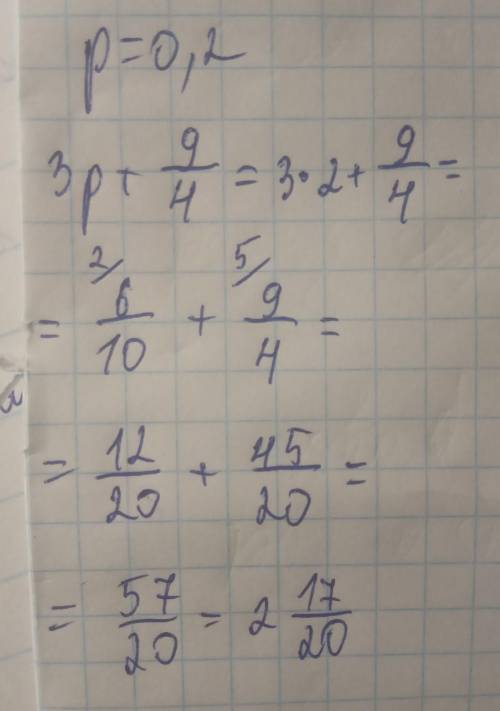 p=0,2
3p + 9/4 = 3·2 + 9/4 =
= 2/ 6/10 + 5/ 9/4 =
= 12/20 + 45/20 =
= 57/20 = 2 17/20